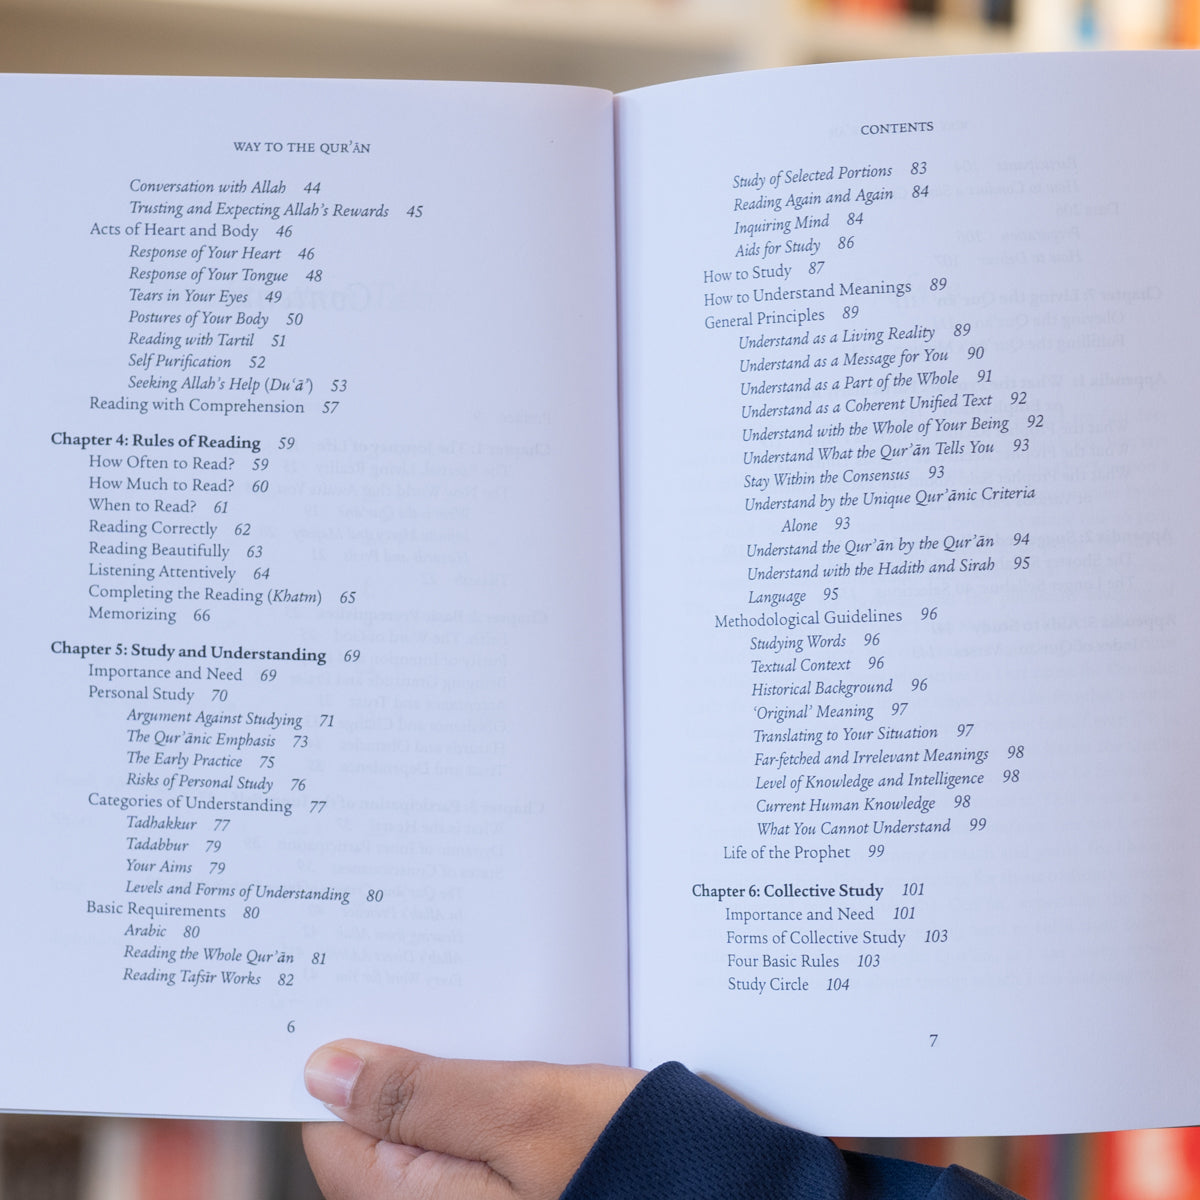 WAY TO THE QUR’ĀN
Conversation with Allah 44
Trusting and Expecting Allah’s Rewards 45
Acts of Heart and Body 46
Response of Your Heart 46
Response of Your Tongue 48
Tears in Your Eyes 49
Postures of Your Body 50
Reading with Tartil 51
Self Purification 52
Seeking Allah’s Help (Du‘ā’) 53
Reading with Comprehension 57
Chapter 4: Rules of Reading 59
How Often to Read? 59
How Much to Read? 60
When to Read? 61
Reading Correctly 62
Reading Beautifully 63
Listening Attentively 64
Completing the Reading (Khatm) 65
Memorizing 66
Chapter 5: Study and Understanding 69
Importance and Need 69
Personal Study 70
Argument Against Studying 71
The Qur’ānic Emphasis 73
The Early Practice 75
Risks of Personal Study 76
Categories of Understanding 77
Tadhakkur 77
Tadabbur 79
Your Aims 79
Levels and Forms of Understanding 80
Basic Requirements 80
Arabic 80
Reading the Whole Qur’ān 81
Reading Tafsīr Works 82
6
CONTENTS
Study of Selected Portions 83
Reading Again and Again 84
Inquiring Mind 84
Aids for Study 86
How to Study 87
How to Understand Meanings 89
General Principles 89
Understand as a Living Reality 89
Understand as a Message for You 90
Understand as a Part of the Whole 91
Understand as a Coherent Unified Text 92
Understand with the Whole of Your Being 92
Understand What the Qur’ān Tells You 93
Stay Within the Consensus 93
Understand by the Unique Qur’ānic Criteria
Alone 93
Understand the Qur’ān by the Qur’ān 94
Understand with the Hadith and Sirah 95
Language 95
Methodological Guidelines 96
Studying Words 96
Textual Context 96
Historical Background 96
‘Original’ Meaning 97
Translating to Your Situation 97
Far-fetched and Irrelevant Meanings 98
Level of Knowledge and Intelligence 98
Current Human Knowledge 98
What You Cannot Understand 99
Life of the Prophet 99
Chapter 6: Collective Study 101
Importance and Need 101
Forms of Collective Study 103
Four Basic Rules 103
Study Circle 104
7